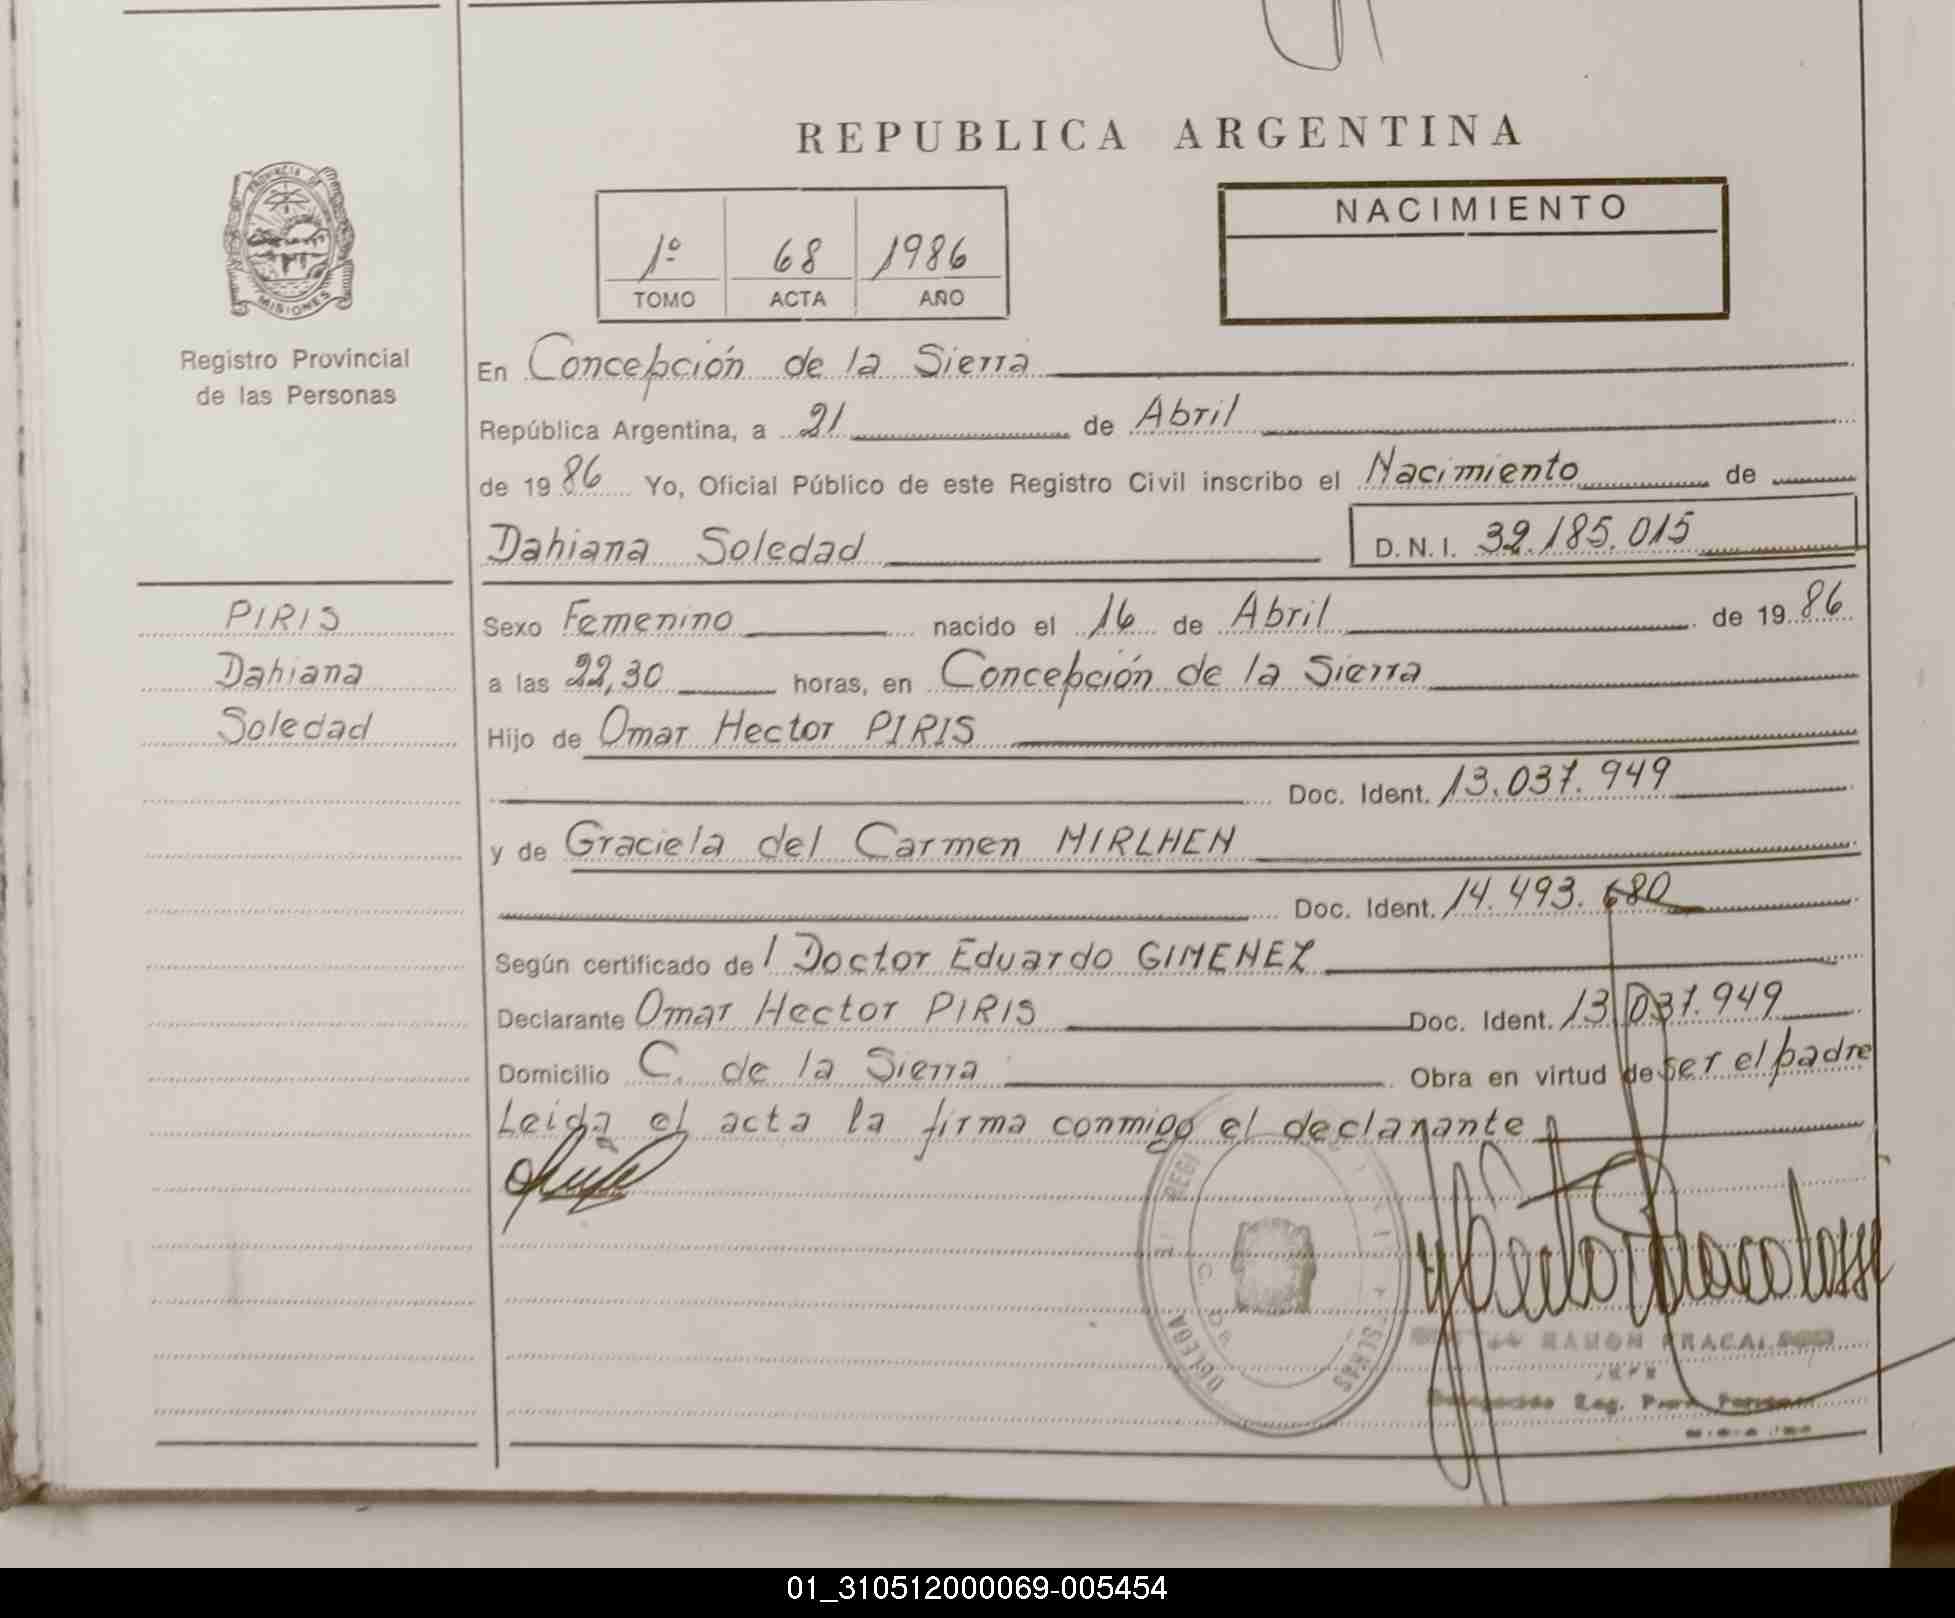 REPUBLICA ARGENTINA
PROVINCIA DE MISIONES
1º 68 1986
TOMO ACTA AÑO
NACIMIENTO
Registro Provincial
de las Personas
En Concepción de la Sierra
República Argentina, a 21 de Abril
de 1986 Yo, Oficial Público de este Registro Civil inscribo el Nacimiento de
Dahiana Soledad D.N.I. 32.185.015
PIRIS
Dahiana
Soledad
Sexo Femenino nacido el 16 de Abril de 1986
a las 22,30 horas, en Concepción de la Sierra
Hijo de Omar Hector PIRIS
Doc. Ident. 13.037.949
y de Graciela del Carmen MIRLHEN
Doc. Ident. 14.493.680
Según certificado del Doctor Eduardo GIMENEZ
Declarante Omar Hector PIRIS Doc. Ident. 13.037.949
Domicilio C. de la Sierra Obra en virtud de ser el padre
Leida el acta la firma conmigo el declarante
RAMON FRACALOSSI
JEFE
01_310512000069-005454